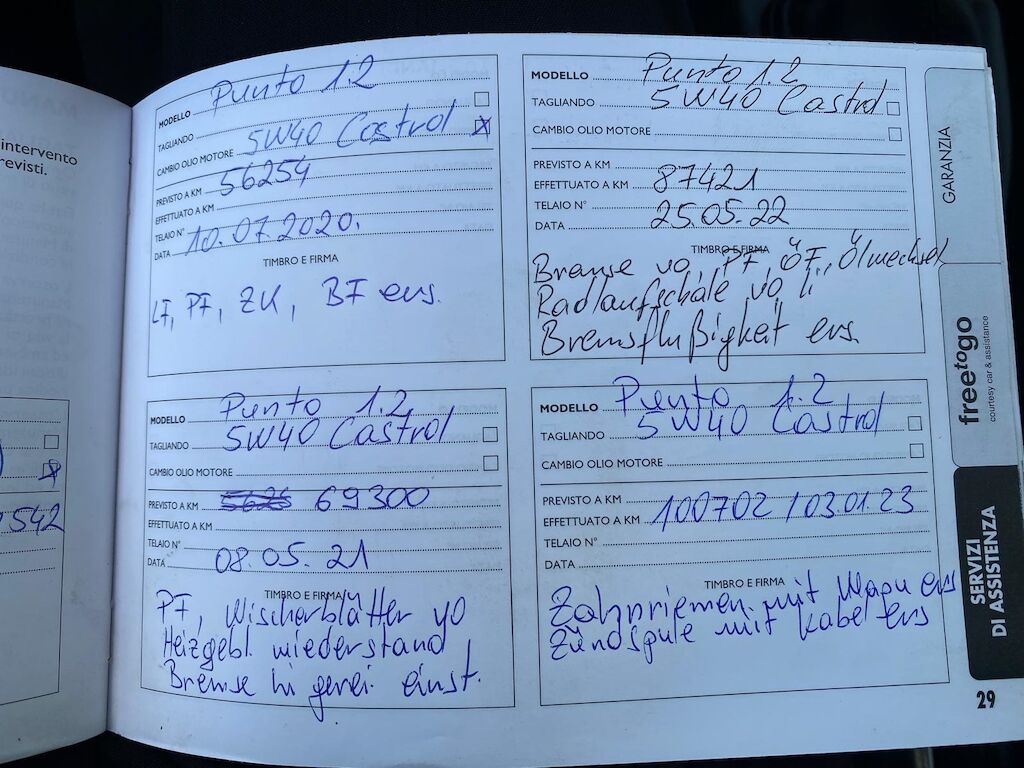 intervento
revisti.
542
MODELLO Punto 1.2
TAGLIANDO 5W40 Castrol
CAMBIO OLIO MOTORE
PREVISTO A KM 56254
EFFETTUATO A KM
TELAIO N°
DATA 10.07.2020.
TIMBRO E FIRMA
LF, PF, ZK, BF ers.
MODELLO Punto 1.2
TAGLIANDO 5W40 Castrol
CAMBIO OLIO MOTORE
PREVISTO A KM
EFFETTUATO A KM 87421
TELAIO N° 25.05.22
DATA
TIMBRO E FIRMA
Bremse vo, PF, ÖF, Ölwechsel
Radlaufschale vo li
Bremsflußigkeit ers.
MODELLO Punto 1.2
TAGLIANDO 5W40 Castrol
CAMBIO OLIO MOTORE
PREVISTO A KM 69300
EFFETTUATO A KM
TELAIO N°
DATA 08.05.21
TIMBRO E FIRMA
PF, Wischerblätter vo
Heizgebl. wiederstand
Bremse hi gerei. einst.
MODELLO Punto 1.2
TAGLIANDO 5W40 Castrol
CAMBIO OLIO MOTORE
PREVISTO A KM
EFFETTUATO A KM 100702 / 03.01.23
TELAIO N°
DATA
TIMBRO E FIRMA
Zahnriemen mit Wapu ers
Zündspule mit Kabel ers
GARANZIA
freetogo
courtesy car & assistance
SERVIZI
DI ASSISTENZA
29